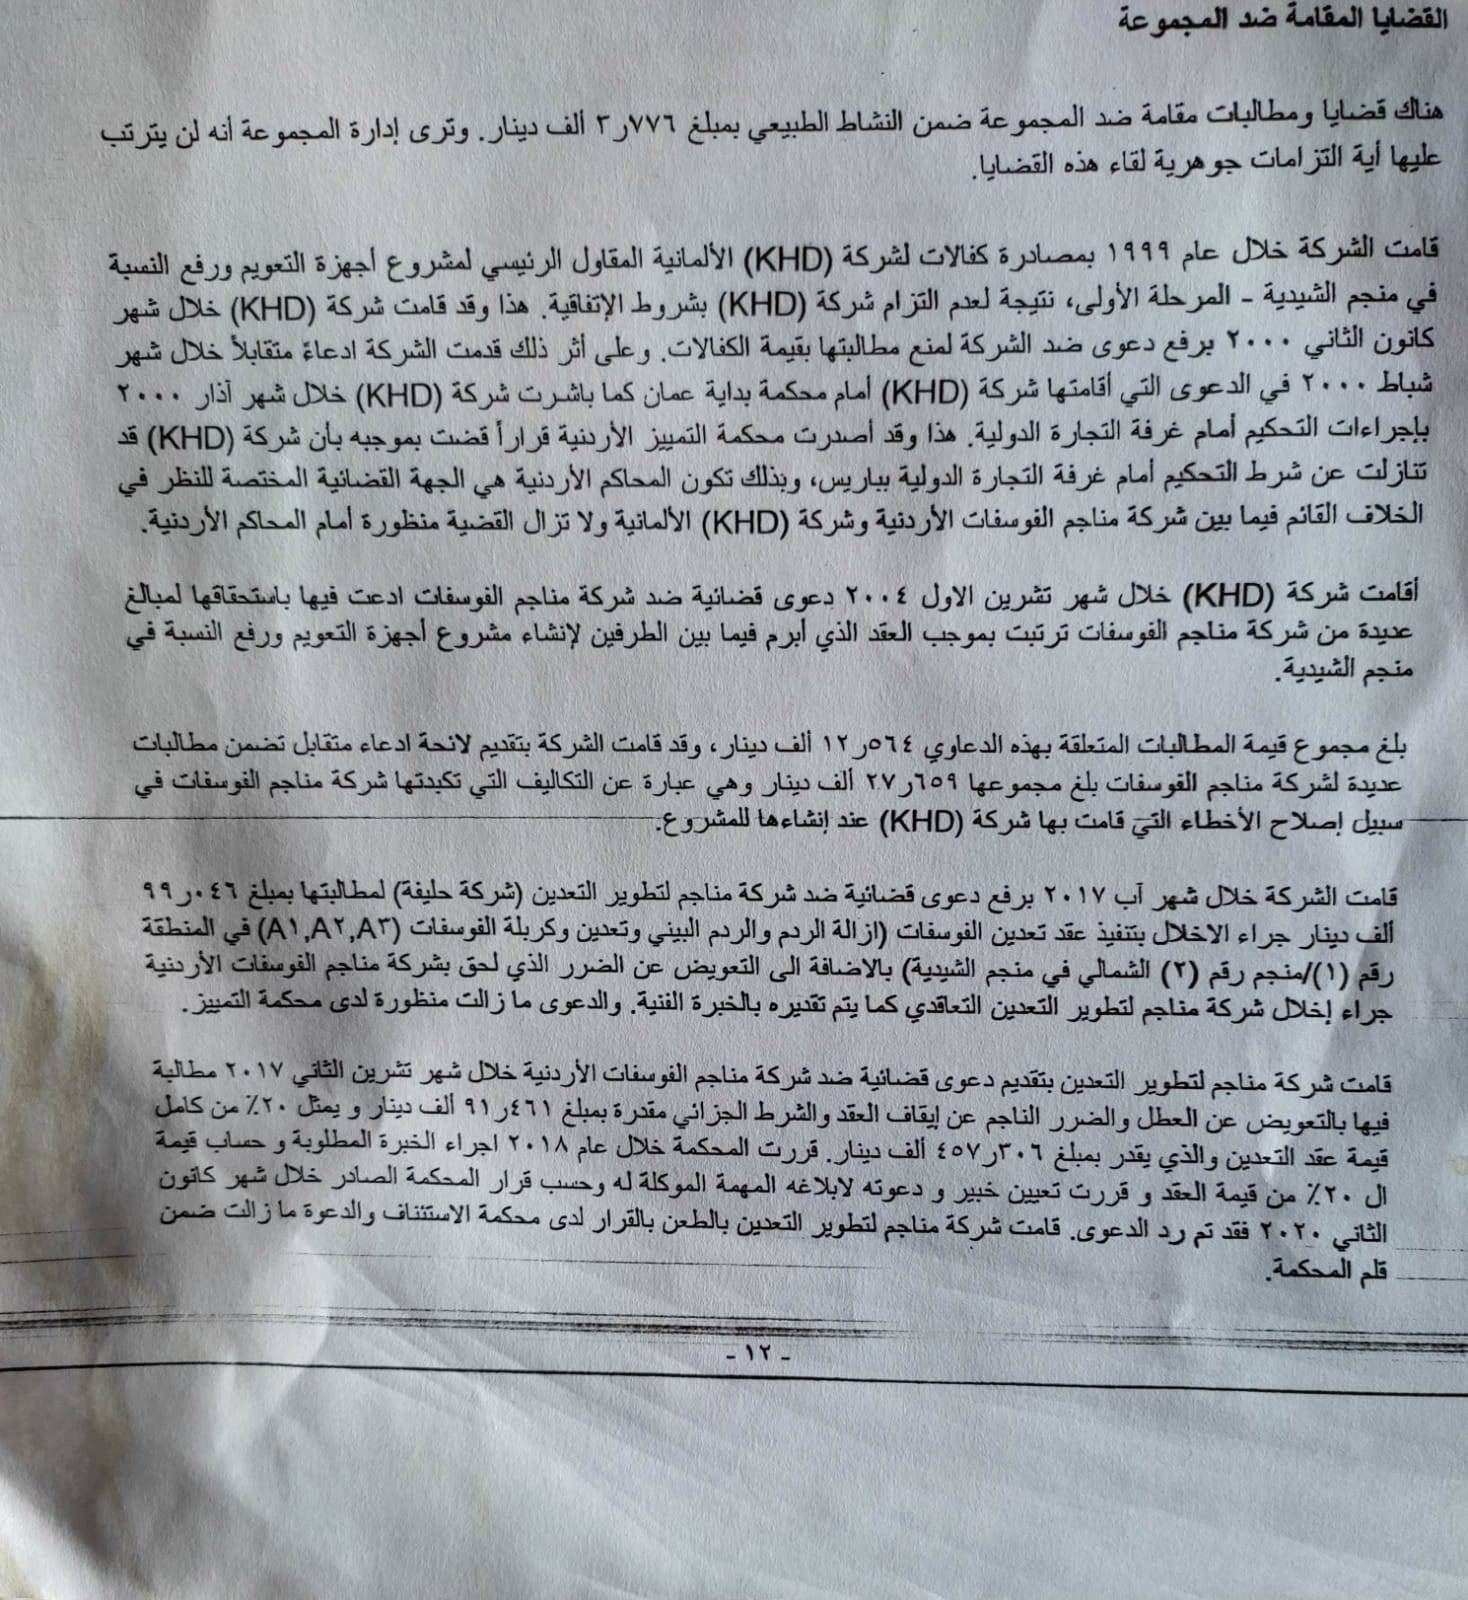 القضايا المقامة ضد المجموعة
هناك قضايا ومطالبات مقامة ضد المجموعة ضمن النشاط الطبيعي بمبلغ ٧٧٦ر٣ ألف دينار. وترى إدارة المجموعة أنه لن يترتب
عليها أية التزامات جوهرية لقاء هذه القضايا.
قامت الشركة خلال عام ١٩٩٩ بمصادرة كفالات لشركة (KHD) الألمانية المقاول الرئيسي لمشروع أجهزة التعويم ورفع النسبة
في منجم الشيدية - المرحلة الأولى، نتيجة لعدم التزام شركة (KHD) بشروط الإتفاقية. هذا وقد قامت شركة (KHD) خلال شهر
كانون الثاني ٢٠٠٠ برفع دعوى ضد الشركة لمنع مطالبتها بقيمة الكفالات. وعلى أثر ذلك قدمت الشركة ادعاءً متقابلاً خلال شهر
شباط ٢٠٠٠ في الدعوى التي أقامتها شركة (KHD) أمام محكمة بداية عمان كما باشرت شركة (KHD) خلال شهر آذار ٢٠٠٠
بإجراءات التحكيم أمام غرفة التجارة الدولية. هذا وقد أصدرت محكمة التمييز الأردنية قراراً قضت بموجبه بأن شركة (KHD) قد
تنازلت عن شرط التحكيم أمام غرفة التجارة الدولية بباريس، وبذلك تكون المحاكم الأردنية هي الجهة القضائية المختصة للنظر في
الخلاف القائم فيما بين شركة مناجم الفوسفات الأردنية وشركة (KHD) الألمانية ولا تزال القضية منظورة أمام المحاكم الأردنية.
أقامت شركة (KHD) خلال شهر تشرين الاول ٢٠٠٤ دعوى قضائية ضد شركة مناجم الفوسفات ادعت فيها باستحقاقها لمبالغ
عديدة من شركة مناجم الفوسفات ترتبت بموجب العقد الذي أبرم فيما بين الطرفين لإنشاء مشروع أجهزة التعويم ورفع النسبة في
منجم الشيدية.
بلغ مجموع قيمة المطالبات المتعلقة بهذه الدعاوي ٥٦٤ر١٢ ألف دينار، وقد قامت الشركة بتقديم لائحة ادعاء متقابل تضمن مطالبات
عديدة لشركة مناجم الفوسفات بلغ مجموعها ٦٥٩ر٢٧ ألف دينار وهي عبارة عن التكاليف التي تكبدتها شركة مناجم الفوسفات في
سبيل إصلاح الأخطاء التي قامت بها شركة (KHD) عند إنشاءها للمشروع.
قامت الشركة خلال شهر آب ٢٠١٧ برفع دعوى قضائية ضد شركة مناجم لتطوير التعدين (شركة حليفة) لمطالبتها بمبلغ ٠٤٦ر٩٩
ألف دينار جراء الاخلال بتنفيذ عقد تعدين الفوسفات (ازالة الردم والردم البيني وتعدين وكربلة الفوسفات (A١,A٢,A٣) في المنطقة
رقم (١)/منجم رقم (٢) الشمالي في منجم الشيدية) بالاضافة الى التعويض عن الضرر الذي لحق بشركة مناجم الفوسفات الأردنية
جراء إخلال شركة مناجم لتطوير التعدين التعاقدي كما يتم تقديره بالخبرة الفنية. والدعوى ما زالت منظورة لدى محكمة التمييز.
قامت شركة مناجم لتطوير التعدين بتقديم دعوى قضائية ضد شركة مناجم الفوسفات الأردنية خلال شهر تشرين الثاني ٢٠١٧ مطالبة
فيها بالتعويض عن العطل والضرر الناجم عن إيقاف العقد والشرط الجزائي مقدرة بمبلغ ٤٦١ر٩١ ألف دينار و يمثل ٢٠٪ من كامل
قيمة عقد التعدين والذي يقدر بمبلغ ٣٠٦ر٤٥٧ ألف دينار. قررت المحكمة خلال عام ٢٠١٨ اجراء الخبرة المطلوبة و حساب قيمة
ال ٢٠٪ من قيمة العقد و قررت تعيين خبير و دعوته لابلاغه المهمة الموكلة له وحسب قرار المحكمة الصادر خلال شهر كانون
الثاني ٢٠٢٠ فقد تم رد الدعوى. قامت شركة مناجم لتطوير التعدين بالطعن بالقرار لدى محكمة الاستئناف والدعوة ما زالت ضمن
قلم المحكمة.
- ١٢ -